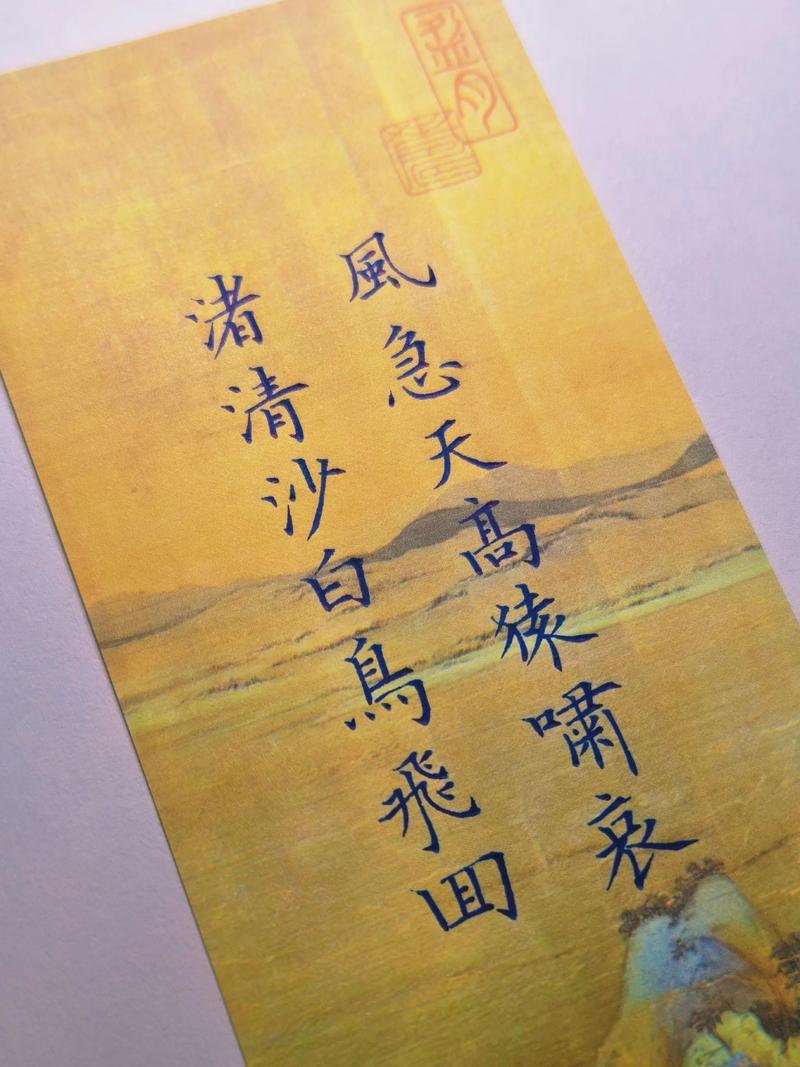 風急天高猿嘯哀
渚清沙白鳥飛回